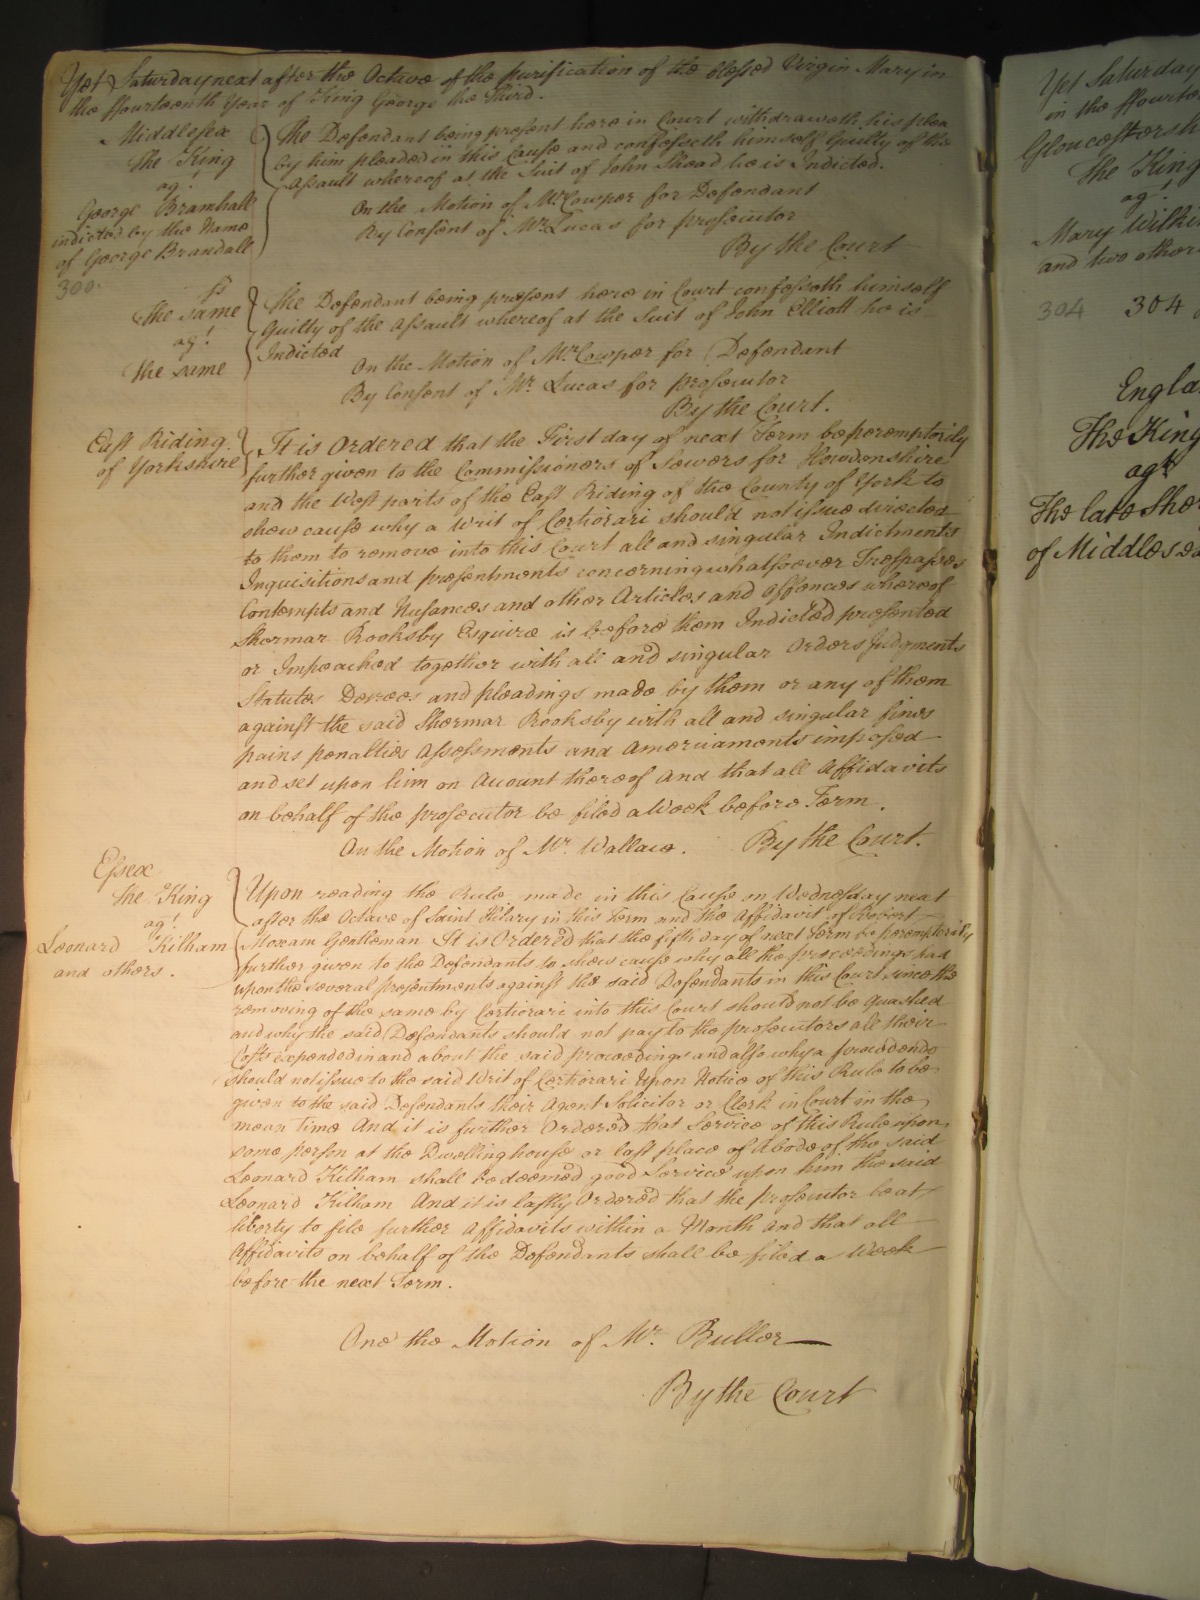 Yet Saturday next after the Octave of the purification of the blessed Virgin Mary in
the ffourteenth Year of King George the Third.
Middlesex
The King
agt
George Bramhall
indicted by the Name
of George Brandall
300
The Defendant being present here in Court withdraweth his plea
by him pleaded in this Cause and confesseth himself Guilty of the
Assault whereof at the Suit of John Shead he is Indicted.
On the Motion of Mr. Cowper for Defendant
By Consent of Mr. Lucas for prosecutor
By the Court
The same
agt
The same
The Defendant being present here in Court confesseth himself
Guilty of the Assault whereof at the Suit of John Elliott he is
Indicted
On the Motion of Mr. Cowper for Defendant
By Consent of Mr. Lucas for prosecutor
By the Court.
East Riding
of Yorkshire
It is Ordered that the First day of next Term be peremptorily
further given to the Commissioners of Sewers for Howdenshire
and the West parts of the East Riding of the County of York to
shew cause why a Writ of Certiorari should not issue directed
to them to remove into this Court all and singular Indictments
Inquisitions and presentments concerning whatsoever Trespasses
Contempts and Nusances and other Articles and Offences whereof
Shermar Rooksby Esquire is before them Indicted presented
or Impeached together with all and singular Orders Judgments
Statutes Decrees and pleadings made by them or any of them
against the said Shermar Rooksby with all and singular fines
pains penalties Assessments and Amerciaments imposed
and set upon him on Account thereof And that all Affidavits
on behalf of the prosecutor be filed a Week before Term.
On the Motion of Mr. Wallace. By the Court.
Essex
The King
agt
Leonard Kilham
and others.
Upon reading the Rule made in this Cause on Wednesday next
after the Octave of Saint Hilary in this Term and the Affidavit of Robert
Moxam Gentleman It is Ordered that the fifth day of next Term be peremptorily
further given to the Defendants to shew cause why all the proceedings had
upon the several presentments against the said Defendants in this Court since the
removing of the same by Certiorari into this Court should not be quashed
and why the said Defendants should not pay to the prosecutors all their
Costs expended in and about the said proceedings and also why a procedendo
should not issue to the said Writ of Certiorari Upon Notice of this Rule to be
given to the said Defendants their Agent Solicitor or Clerk in Court in the
mean time And it is further Ordered that Service of this Rule upon
some person at the Dwelling house or last place of Abode of the said
Leonard Kilham shall be deemed good Service upon him the said
Leonard Kilham And it is lastly Ordered that the prosecutor be at
liberty to file further Affidavits within a Month And that all
Affidavits on behalf of the Defendants shall be filed a Week
before the next Term.
One the Motion of Mr. Buller
By the Court
Yet Saturday
in the ffourte
Gloucestersh
The King
agt
Mary Wilki
and two other
304 304
Engla
The King
agt
The late Sher
of Middlesex